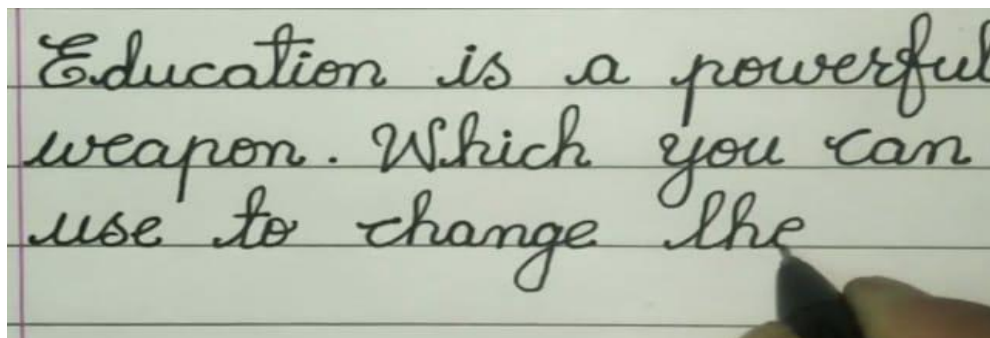 Education is a powerful
weapon. Which you can
use to change the